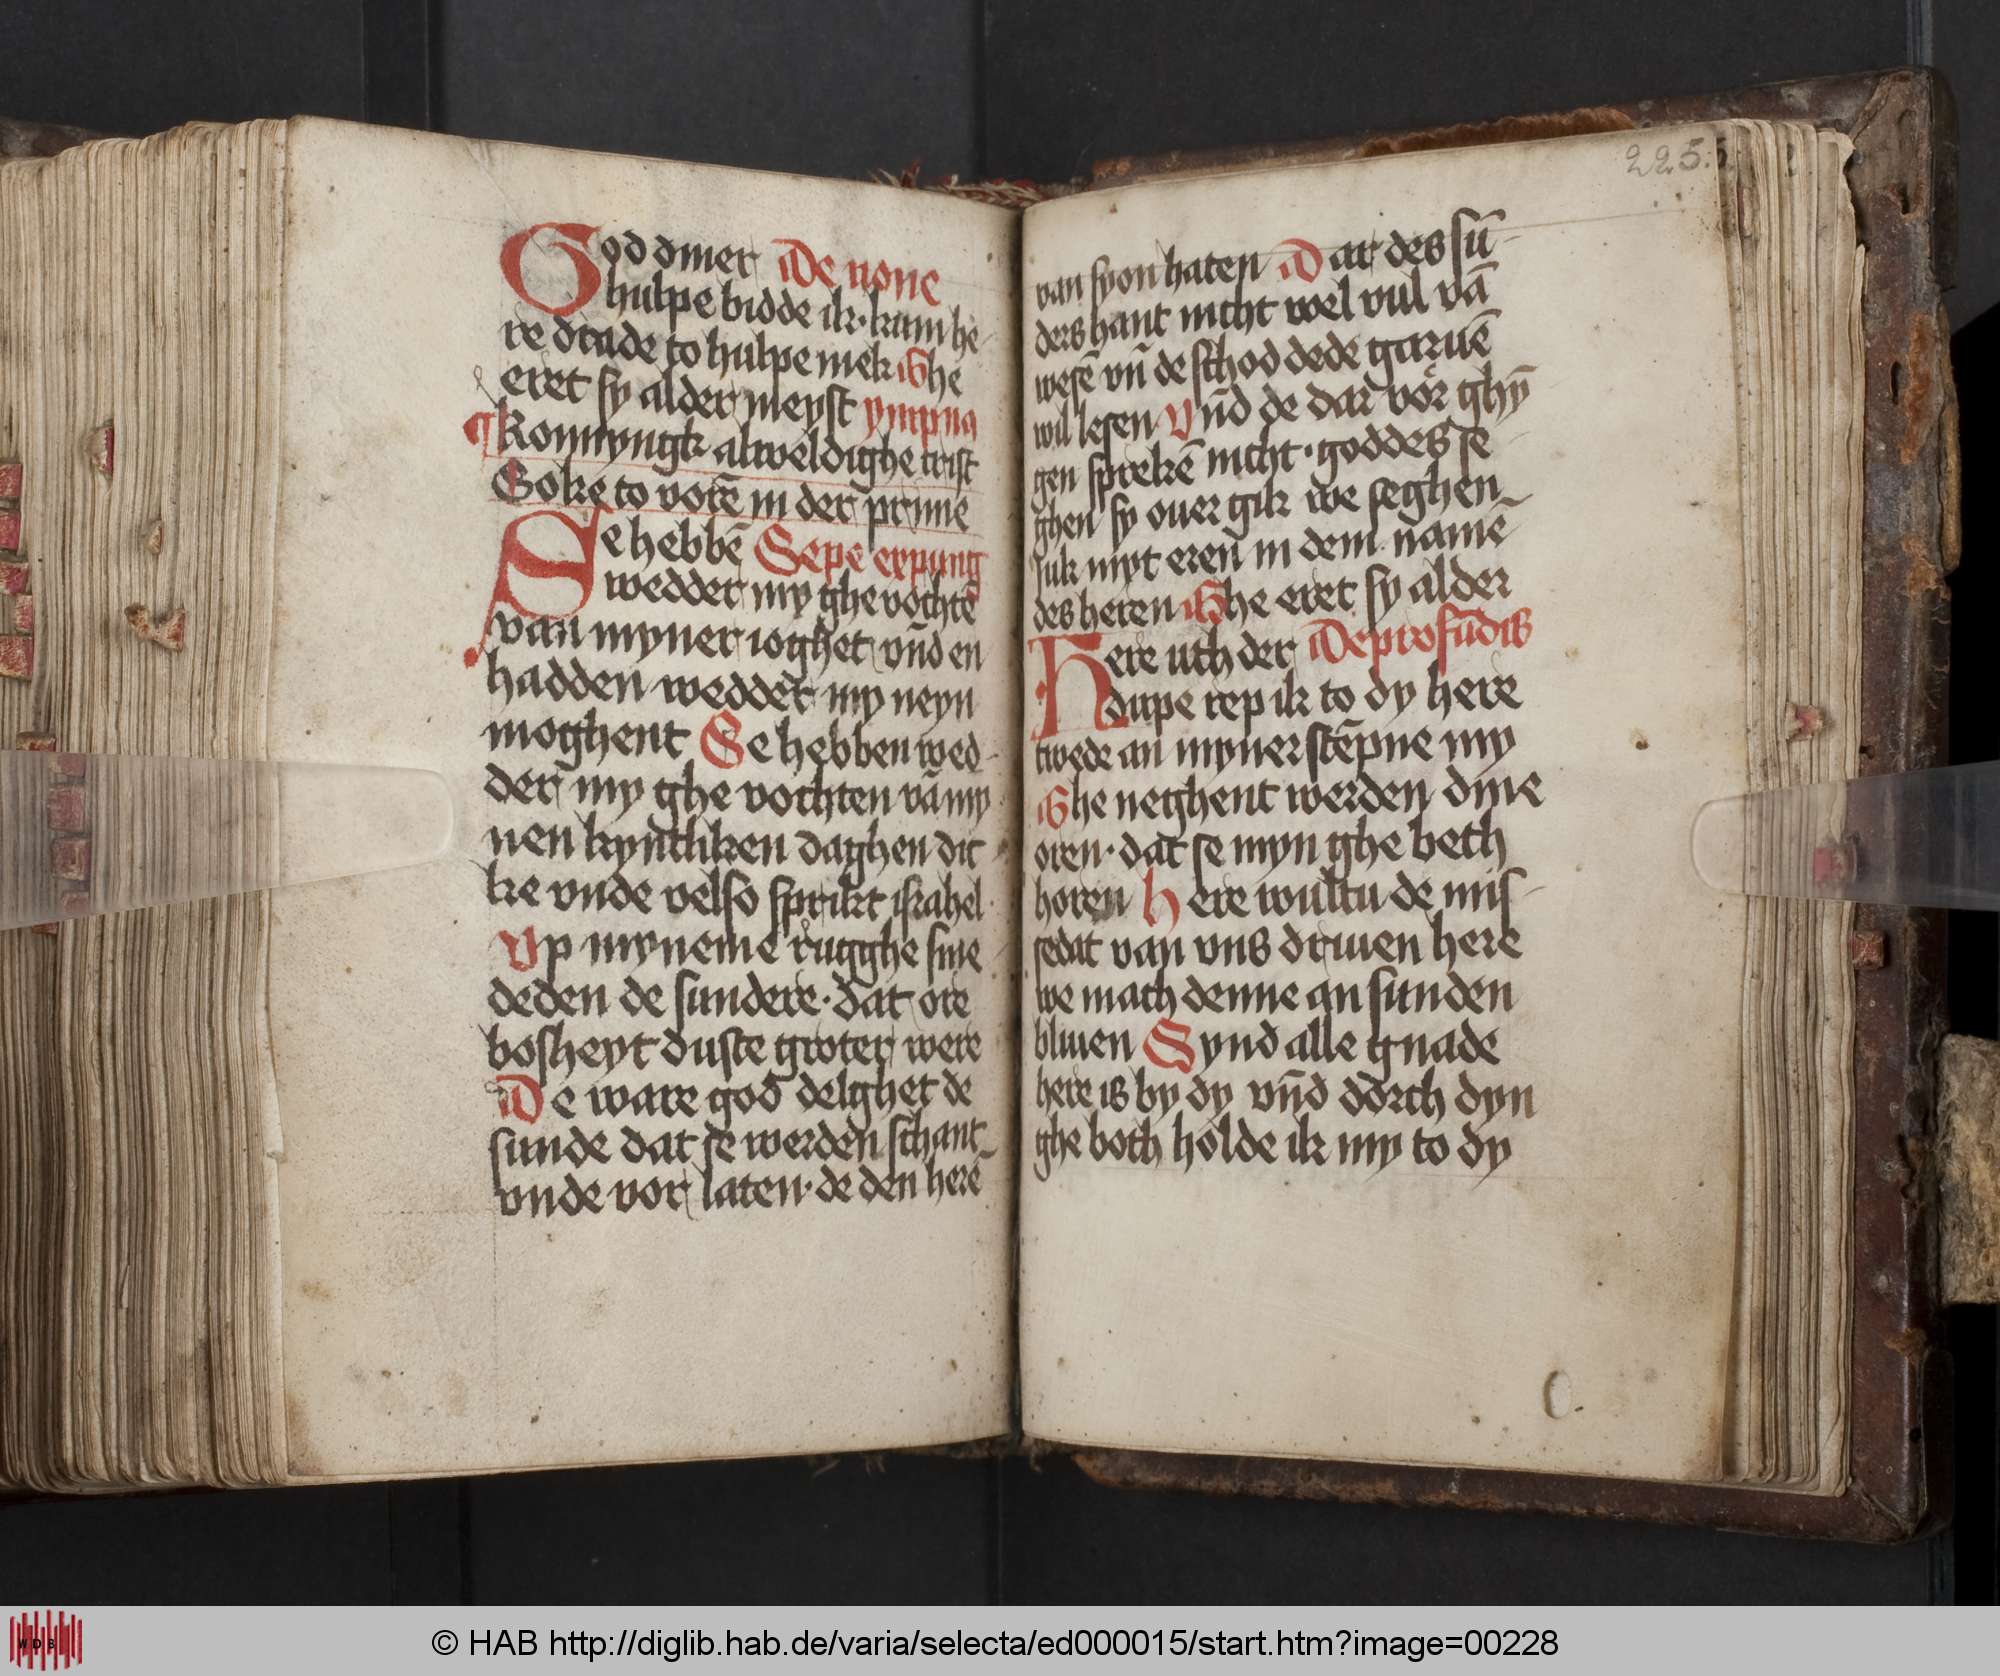 God dmer De none
hulpe bidde ik· kum he
re drade to hulpe mek Ghe
eret sy alder meyst ympna
Konnyngk alweldighe crist
Soke to vorē in der prime
Se hebbē Sepe expung
wedder my ghe vochtē
van myner ioghet vn̄d en
hadden wedder my neyn
moghent Se hebben wed
der my ghe vochten vā my
nen kyntliken daghen dit
ke vnde velso sprikt israhel
Vp myneme rugghe sme
deden de sundere· dat ore
bosheyt duste groter were
De ware god delghet de
sunde dat se werden schant
vnde vor laten· de den herē
225.
van syon haten Dat des sū
ders hant nicht wel vul vā
wesē vn̄ de schod dede garuē
wil lesen Vn̄d de dar vor ghȳ
gen sprekē nicht· goddes se
ghen sy ouer gik we seghen
Juk myt eren in dem namē
des heren Ghe eret sy alder
Here uth der De profūdis
dupe rep ik to dy here
twede an myner stēpne my
Ghe neghent werden dine
oren· dat se myn ghe beth
horen Here wultu de mis
sedat van vns driuen here
we mach denne an sunden
bliuen Synd alle gnade
here is by dy vn̄d dorch dyn
ghe both holde ik my to dy
WDB
© HAB http://diglib.hab.de/varia/selecta/ed000015/start.htm?image=00228